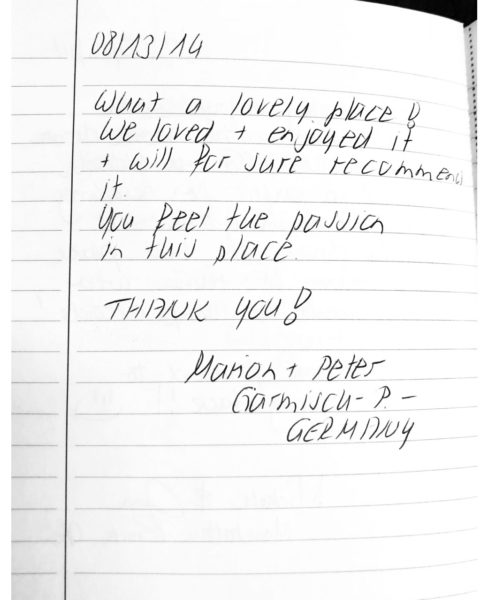 08/13/14
What a lovely place!
We loved + enjoyed it
+ will for sure recommend
it.
You feel the passion
in this place.
THANK YOU!
Marion + Peter
Garmisch-P.-
GERMANY